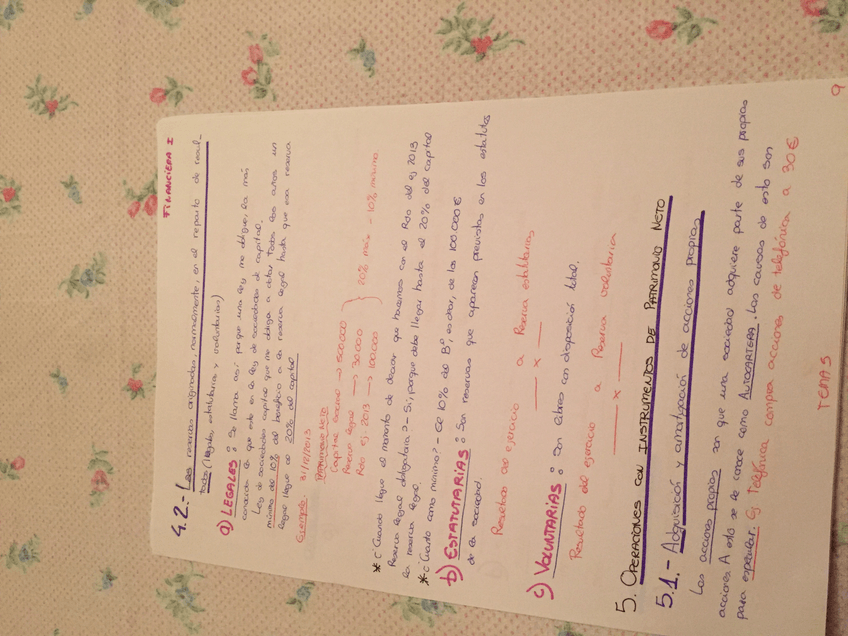 FINANCIERA I
4.2.- Las reservas originadas, normalmente, en el reparto de resul-
tados (legales, estatutarias y voluntarias)
a) LEGALES: Se llama así porque una ley me obliga, la más
conocida es que está en la ley de sociedades de capital.
Ley de sociedades capital que me obliga a dotar todos los años un
mínimo del 10% del beneficio a la reserva legal hasta que esa reserva
legal llegue al 20% del capital
Ejemplo: 31/12/2013
PATRIMONIO NETO
Capital social → 500.000
Reserva legal → 30.000 } 20% máx - 10% mínimo
Rdo ej. 2013 → 100.000
* ¿Cuándo llegue el momento de decidir que hacemos con el Rdo del ej 2013
Reserva legal obligatoria? - Si, porque debe llegar hasta el 20% del capital
la reserva legal.
* ¿Cuánto como mínimo? - El 10% del Bº, es decir, de los 100.000€
b) ESTATUTARIAS: Son reservas que aparecen previstas en los estatutos
de la sociedad.
Resultado del ejercicio a Reserva estatutarias
___ x ___
c) VOLUNTARIAS: Son libres con disposición total.
Resultado del ejercicio a Reserva voluntaria
___ x ___
5. OPERACIONES CON INSTRUMENTOS DE PATRIMONIO NETO
5.1.- Adquisición y amortización de acciones propias
Las acciones propias son que una sociedad adquiere parte de sus propias
acciones. A esto se le conoce como AUTOCARTERA. Las causas de esto son
para especular. Ej Telefónica compra acciones de telefónica a 30€
TEMA 5
9